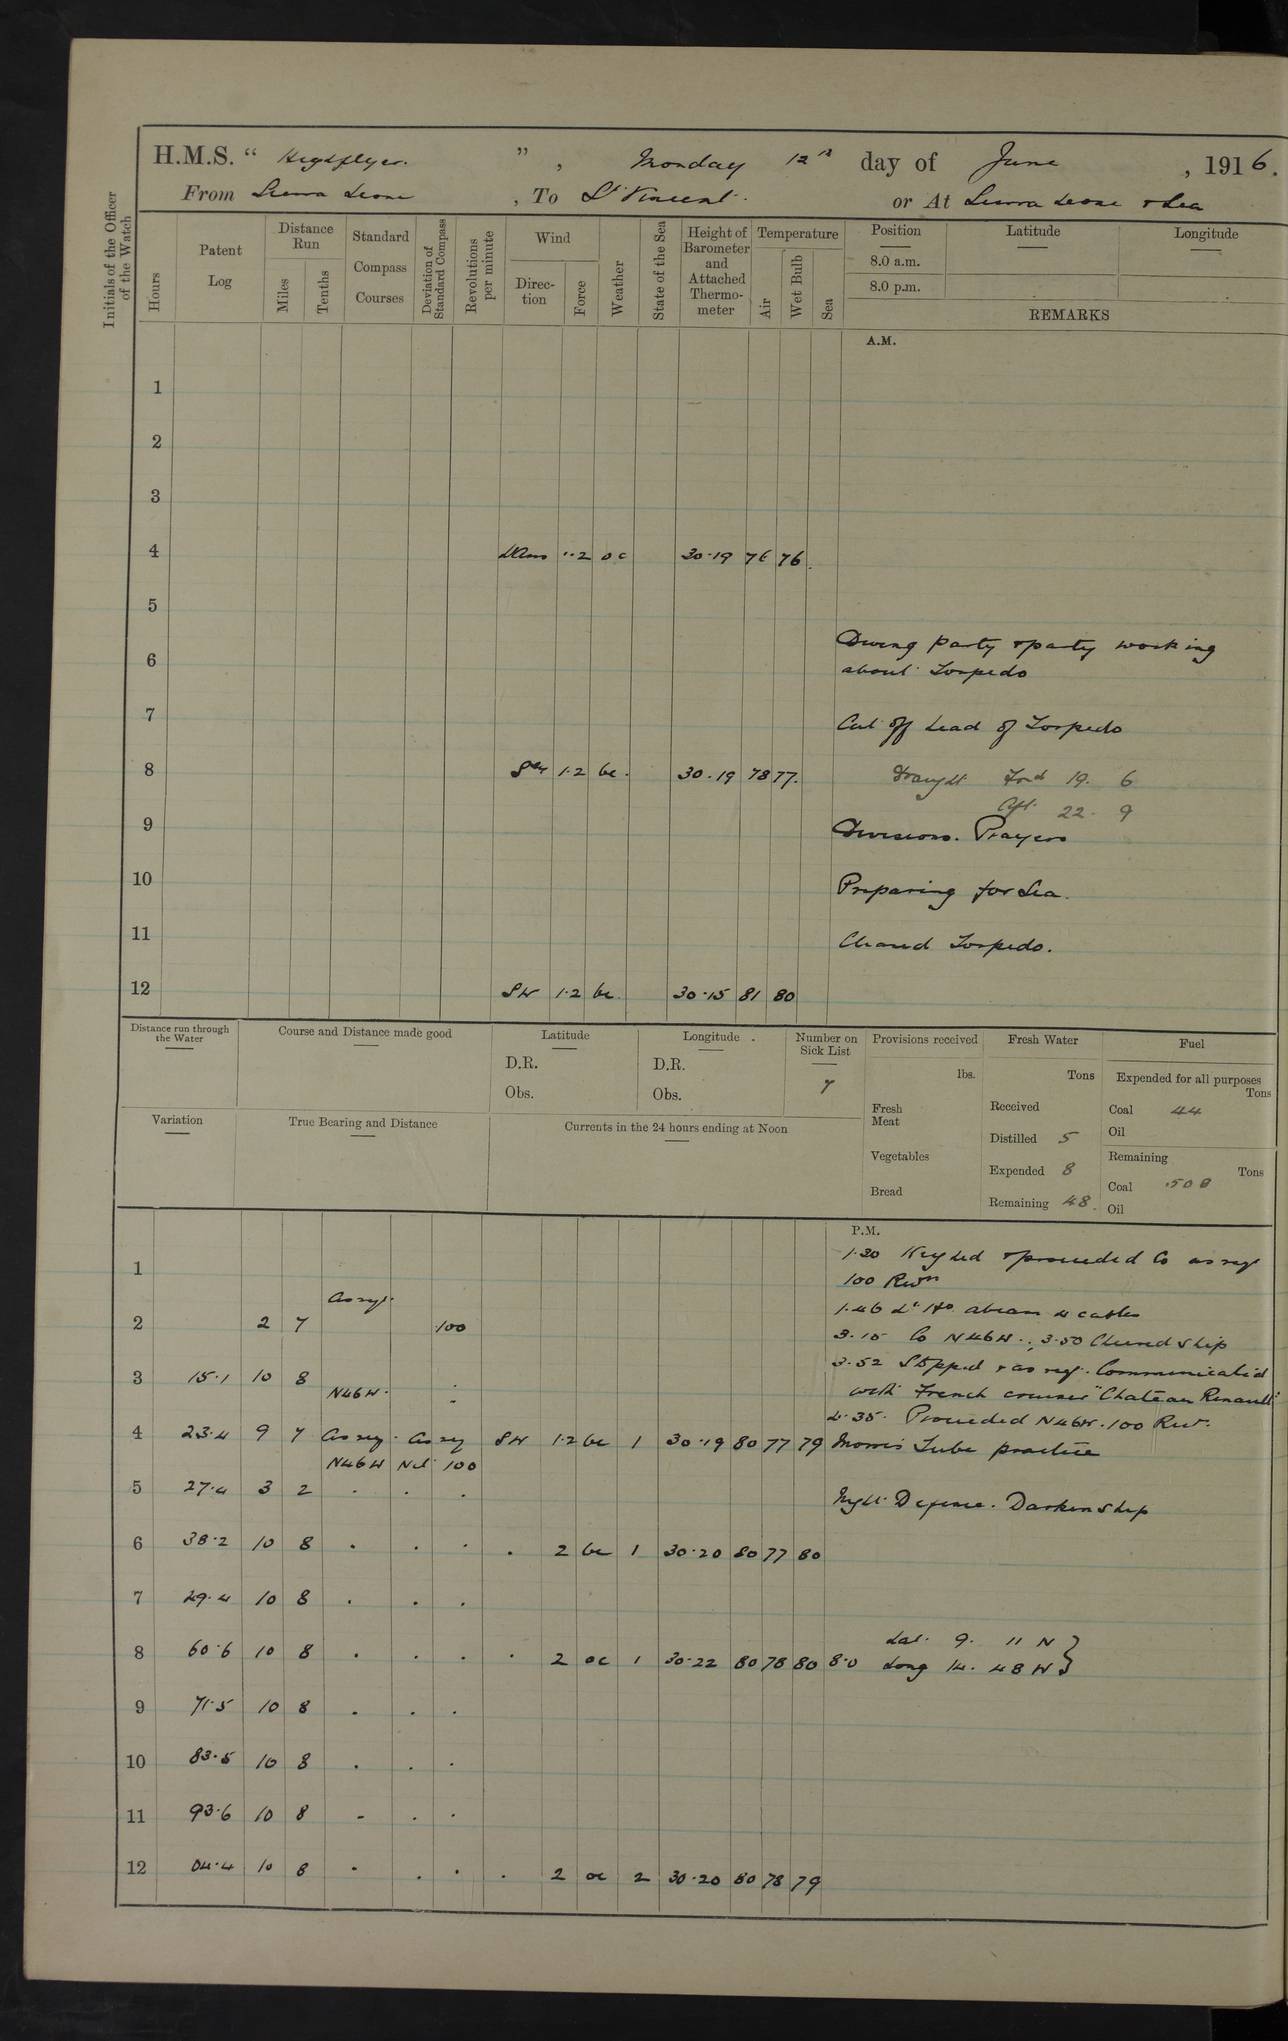 H.M.S. " Highflyer. " , Monday 12th day of June , 1916.
From Sierra Leone , To St Vincent. or At Sierra Leone & Sea
Initials of the Officer of the Watch
Hours
Patent Log
Distance Run
Miles
Tenths
Standard Compass Courses
Deviation of Standard Compass
Revolutions per minute
Wind
Direction
Force
Weather
State of the Sea
Height of Barometer and Attached Thermometer
Temperature
Air
Wet Bulb
Sea
Position
8.0 a.m.
8.0 p.m.
Latitude
Longitude
REMARKS
A.M.
1
2
3
4 1·2 oc 30·19 76 76
5
6 Diving party & party working
about Torpedo
7 Cut off head of Torpedo
8 SW 1·2 bc. 30·19 78 77. Draught Ford 19. 6
Aft. 22. 9
9 Divisions. Prayers
10 Preparing for Sea.
11 Torpedo.
12 SW 1·2 bc. 30·15 81 80
Distance run through the Water
Course and Distance made good
Latitude
D.R.
Obs.
Longitude
D.R.
Obs.
Number on Sick List
7
Provisions received
lbs.
Fresh Meat
Vegetables
Bread
Fresh Water
Tons
Received
Distilled 5
Expended 8
Remaining 48.
Fuel
Expended for all purposes
Tons
Coal 44
Oil
Remaining
Tons
Coal 508
Oil
Variation
True Bearing and Distance
Currents in the 24 hours ending at Noon
P.M.
1 1·20 Weighed & proceeded Co as req
100 Revns
As req.
2 2 7 100 1·46 Lt Ho. abeam 4 cables
3·15 Co N46W. 3·50 Cleared ship
3 15·1 10 8 N46W. . 3·52 Stopped & as req. Communicated
with French cruiser "Chateau Renault"
4·35. Proceeded N46W. 100 Revs.
4 23·4 9 7 As req. As req SW 1·2 bc 1 30·19 80 77 79 Morris Tube practice
N46W Nil 100
5 27·4 3 2 . . . Night Defence. Darken ship
6 38·2 10 8 . . . . 2 bc 1 30·20 80 77 80
7 49·4 10 8 . . .
8 60·6 10 8 . . . . 2 oc 1 30·22 80 78 80 8·0 Lat. 9. 11 N
Long 14. 48 W }
9 71·5 10 8 . . .
10 83·5 10 8 . . .
11 93·6 10 8 - . .
12 04·4 10 8 . . . . 2 oc 2 30·20 80 78 79